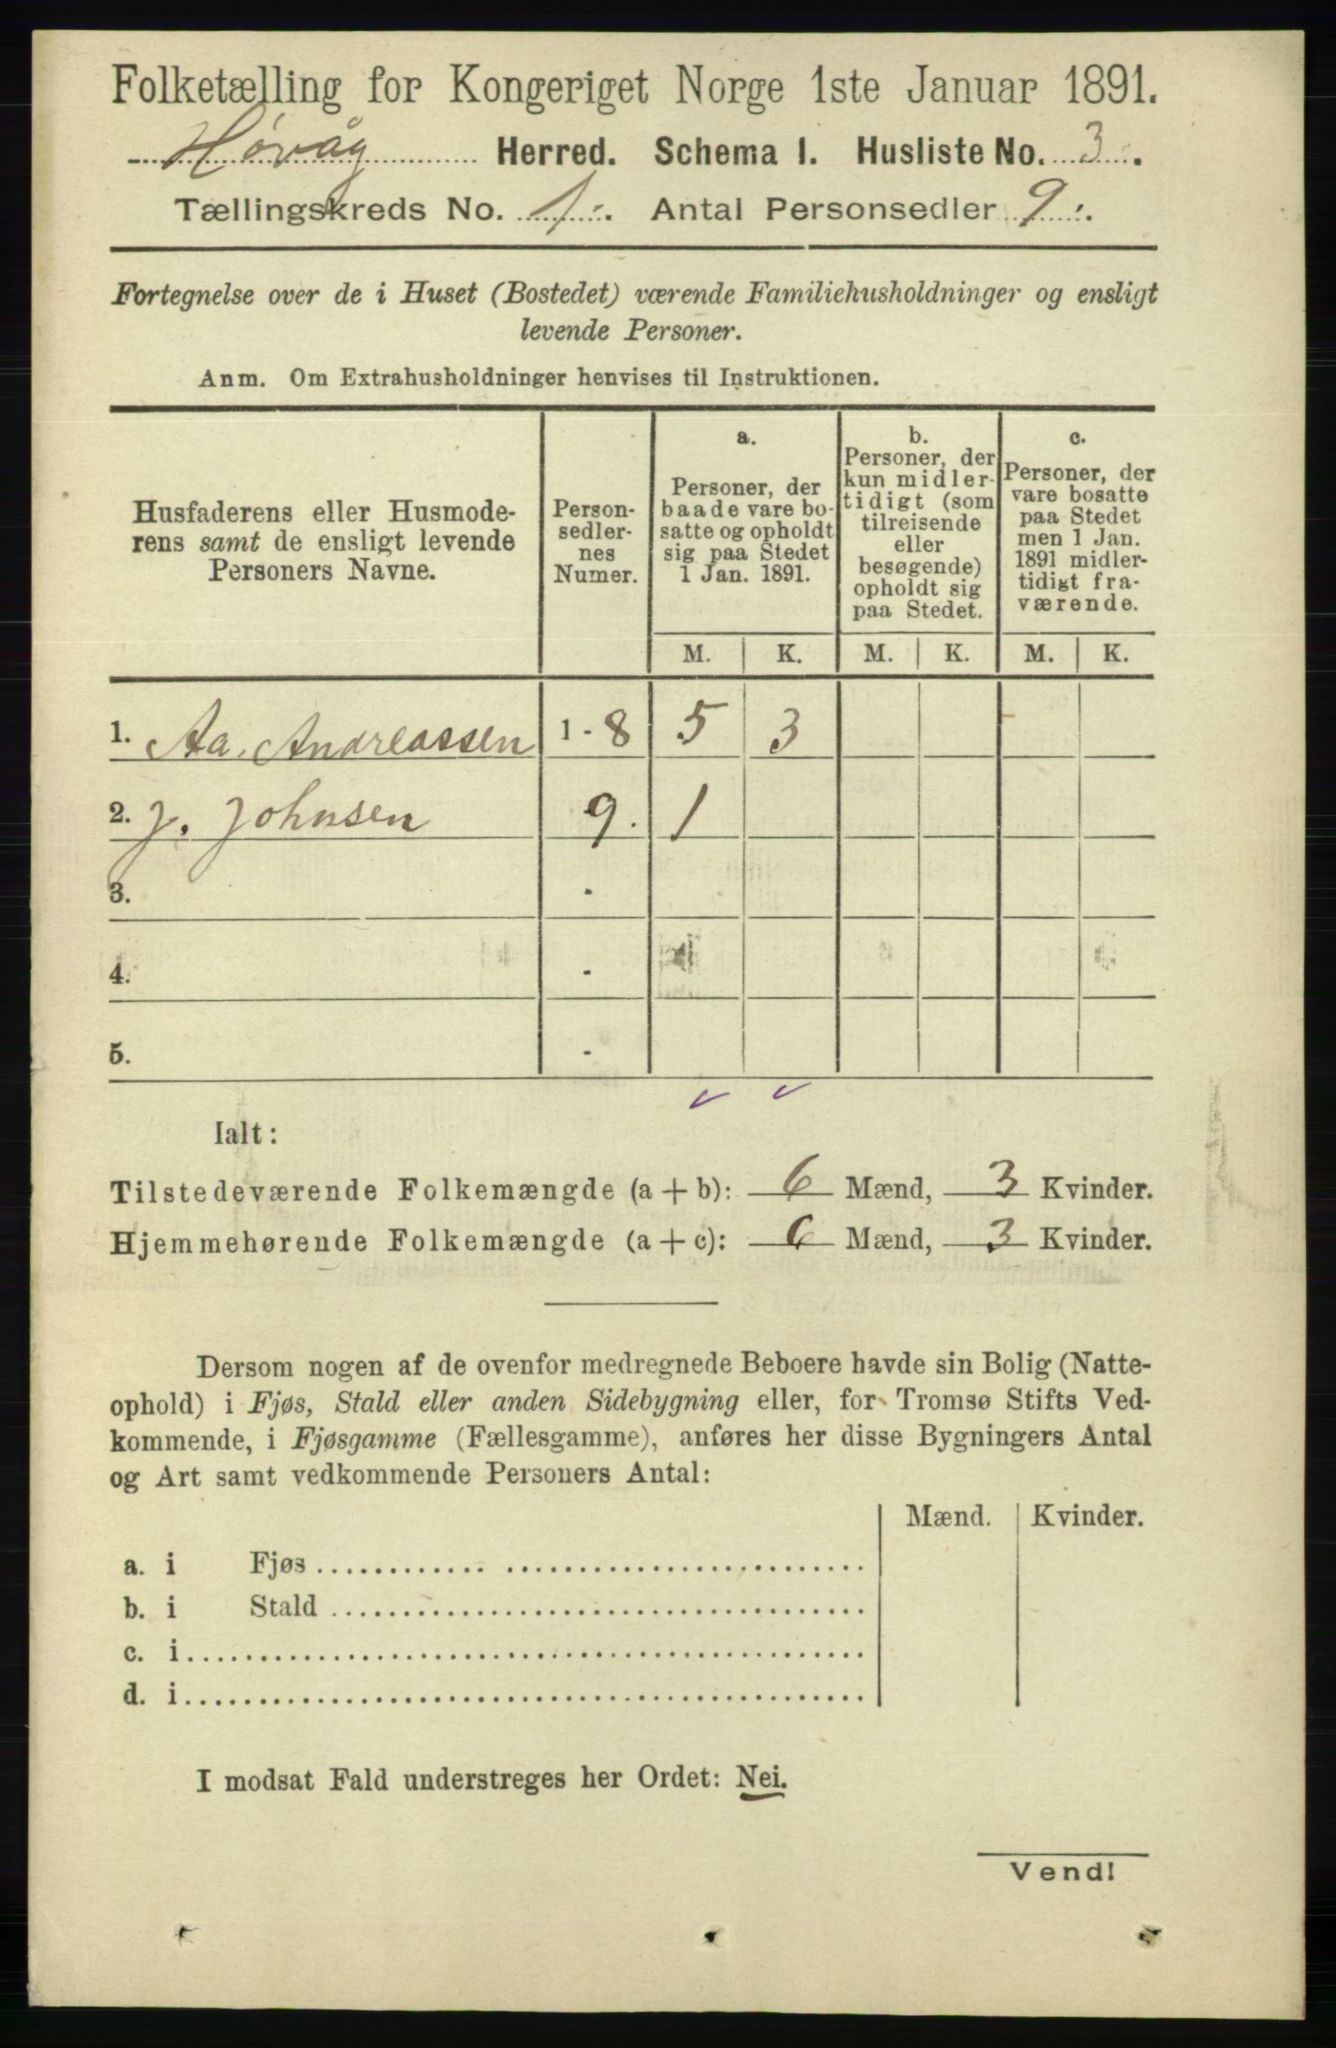 Folketælling for Kongeriget Norge 1ste Januar 1891.
Høvåg Herred. Schema I. Husliste No. 3.
Tællingskreds No. 1. Antal Personsedler 9.
Fortegnelse over de i Huset (Bostedet) værende Familiehusholdninger og ensligt
levende Personer.
Anm. Om Extrahusholdninger henvises til Instruktionen.
Husfaderens eller Husmode-
rens samt de ensligt levende
Personers Navne.
Person-
sedler-
nes
Numer.
a.
Personer, der
baade vare bo-
satte og opholdt
sig paa Stedet
1 Jan. 1891.
b.
Personer, der
kun midler-
tidigt (som
tilreisende
eller
besøgende)
opholdt sig
paa Stedet.
c.
Personer, der
vare bosatte
paa Stedet
men 1 Jan.
1891 midler-
tidigt fra-
værende.
M. K. M. K. M. K.
1. Aa. Andreassen 1 - 8 5 3
2. J. Johnsen 9. 1
3. -
4. -
5. -
Ialt:
Tilstedeværende Folkemængde (a + b): 6 Mænd, 3 Kvinder.
Hjemmehørende Folkemængde (a + c): 6 Mænd, 3 Kvinder.
Dersom nogen af de ovenfor medregnede Beboere havde sin Bolig (Natte-
ophold) i Fjøs, Stald eller anden Sidebygning eller, for Tromsø Stifts Ved-
kommende, i Fjøsgamme (Fællesgamme), anføres her disse Bygningers Antal
og Art samt vedkommende Personers Antal:
Mænd. Kvinder.
a. i Fjøs
b. i Stald
c. i
d. i
I modsat Fald understreges her Ordet: Nei.
Vend!